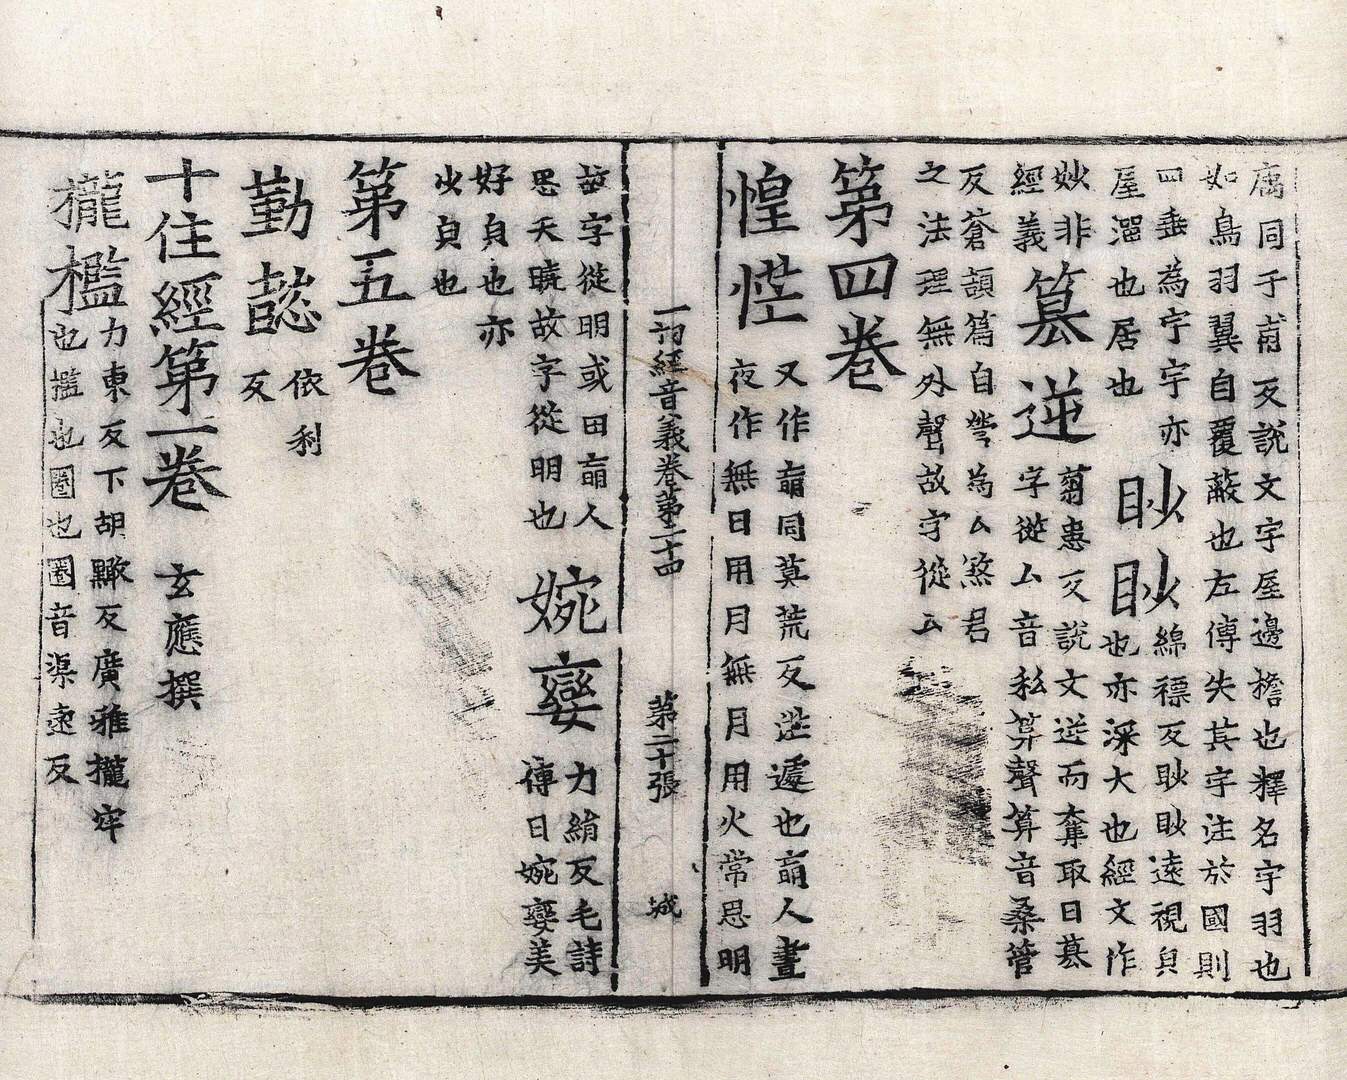 腐同于甫反說文宇屋邊檐也釋名宇羽也
如鳥羽翼自覆蔽也左傳失其宇注於國則
四垂為宇宇亦
屋溜也居也
眇眇
綿褾反眇眇遠視皃
也亦深大也經文作
妙非
經義
篡逆
蒭患反說文逆而奪取曰篡
字從厶音私算聲算音桑管
反蒼頡篇自營為厶煞君
之法理無外聲故字從厶
第四卷
惶恾
又作䀮同莫荒反恾遽也䀮人晝
夜作無日用月無月用火常思明
故字從明或曰䀮人
思天曉故字從明也
婉孌
力絹反毛詩
傳曰婉孌美
好皃也亦
少皃也
第五卷
勤懿
依利
反
十住經第一卷 玄應撰
攏檻
力東反下胡黤反廣雅攏牢
也檻也圈也圈音渠遠反
一切經音義卷第二十四 第二十張 城